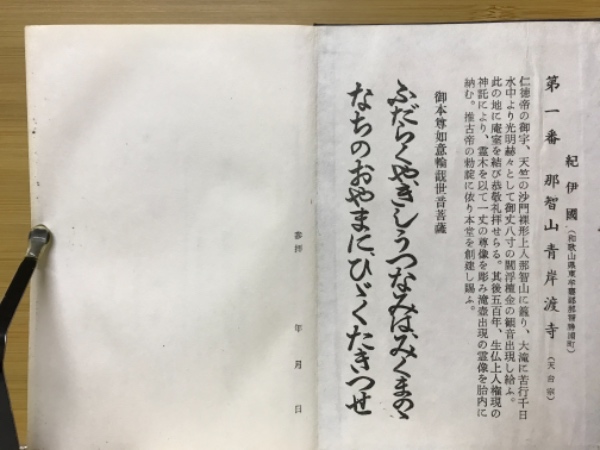 紀伊國（和歌山縣東牟婁郡那智勝浦町）
第一番　那智山青岸渡寺（天台宗）
仁徳帝の御宇、天竺の沙門裸形上人那智山に籠り、大滝に苦行千日
水中より光明赫々として御丈八寸の閻浮檀金の観音出現し給ふ。
此の地に庵室を結び恭敬礼拝せらる。其後五百年、生仏上人権現の
神託により、霊木を以て一丈の尊像を彫み滝壺出現の霊像を胎内に
納む。推古帝の勅願に依り本堂を創建し賜ふ。
御本尊如意輪観世音菩薩
ふだらくやきしうつなみはみくまのゝ
なちのおやまにひゞくたきつせ
参拝　年　月　日